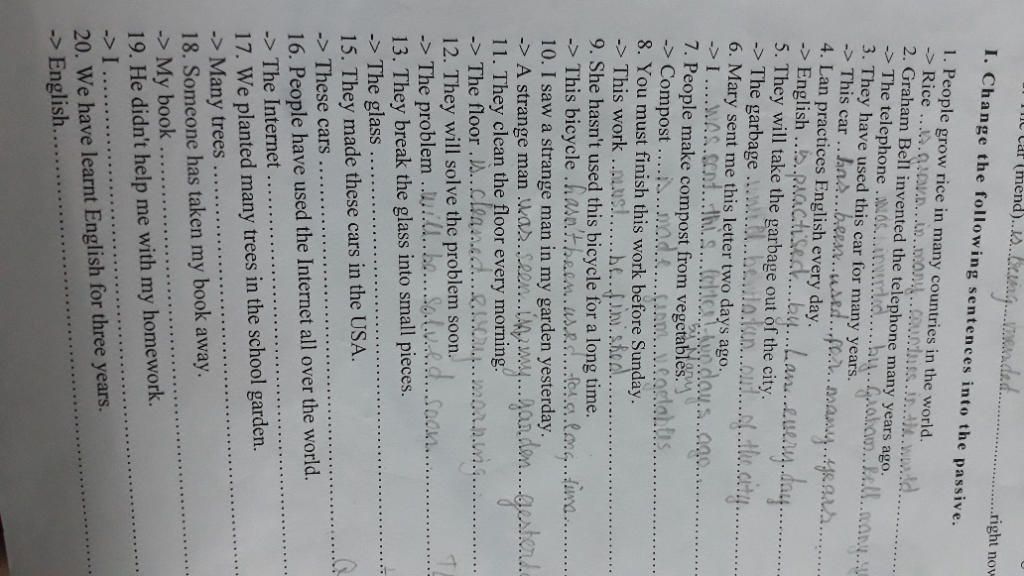 (mend). is being mended..................right now
I. Change the following sentences into the passive.
1. People grow rice in many countries in the world.
-> Rice ...is grown...in many...countries in the world
2. Graham Bell invented the telephone many years ago.
-> The telephone was invented...by Graham Bell many
3. They have used this car for many years.
-> This car ..has..been..used..for..many..years...
4. Lan practices English every day.
-> English...is practised...by...Lan..every..day
5. They will take the garbage out of the city.
-> The garbage will be taken out of the city....
6. Mary sent me this letter two days ago.
-> I ....was sent this letter two days ago....
by Mary
7. People make compost from vegetables.
-> Compost ....is made from vegetables
8. You must finish this work before Sunday.
-> This work ...must...be finished
9. She hasn't used this bicycle for a long time.
-> This bicycle hasn't been used for a long time...
10. I saw a strange man in my garden yesterday
-> A strange man was..seen in my garden...
11. They clean the floor every morning.
-> The floor .is cleaned every morning
12. They will solve the problem soon.
-> The problem .will..be..solved soon...
13. They break the glass into small pieces.
-> The glass ..................
15. They made these cars in the USA.
-> These cars ..................
16. People have used the Internet all over the world.
-> The Internet ..................
17. We planted many trees in the school garden.
-> Many trees ..................
18. Someone has taken my book away.
-> My book ..................
19. He didn't help me with my homework.
-> I ..................
20. We have learnt English for three years.
-> English..................